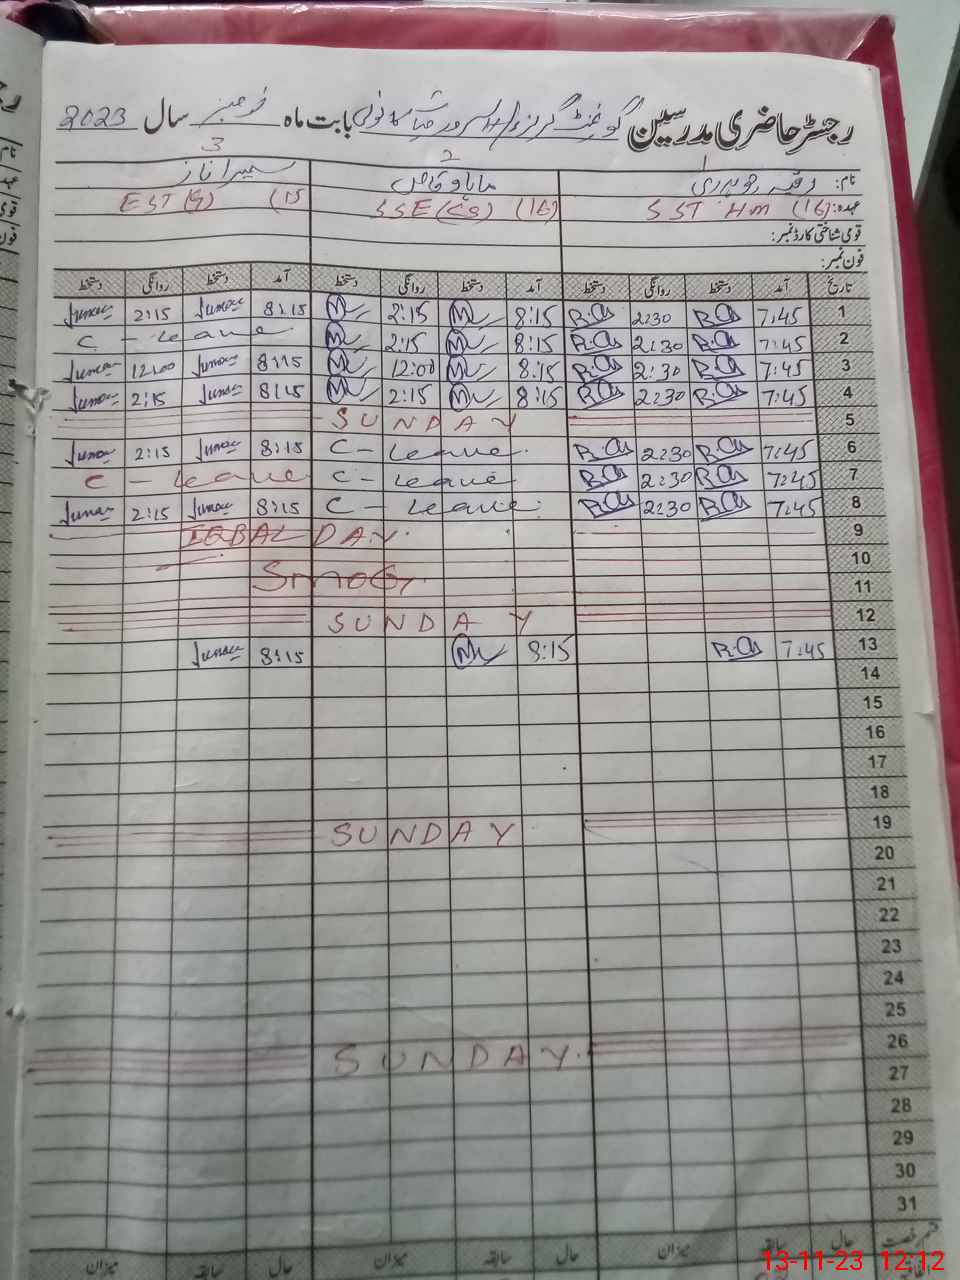 رجسٹر حاضری مدرسین گورنمنٹ گرلز بابت ماہ نومبر سال 2023
1 2 3
نام: رقیہ چوہدری سمیرا ناز
عہدہ: SST HM (16) SSE (16) EST (15
قومی شناختی کارڈ نمبر:
فون نمبر:
تاریخ آمد دستخط روانگی دستخط آمد دستخط روانگی دستخط آمد دستخط روانگی دستخط
1 7:45 R.Ch 2:30 R.Ch 8:15 2:15 8:15 2:15
2 7:45 R.Ch 2:30 R.Ch 8:15 2:15 C - Leave
3 7:45 R.Ch 2:30 R.Ch 8:15 12:00 8:15 12:00
4 7:45 R.Ch 2:30 R.Ch 8:15 2:15 8:15 2:15
5 SUNDAY
6 7:45 R.Ch 2:30 R.Ch C - Leave 8:15 2:15
7 7:45 R.Ch 2:30 R.Ch C - Leave C - Leave
8 7:45 R.Ch 2:30 R.Ch C - Leave 8:15 2:15
9 IQBAL DAY
10
11 SMOG
12 SUNDAY
13 7:45 R.Ch 8:15 8:15
14
15
16
17
18
19 SUNDAY
20
21
22
23
24
25
26 SUNDAY
27
28
29
30
31
قسم رخصت حال سابقہ میزان حال سابقہ میزان حال سابقہ میزان
13-11-23 12:12